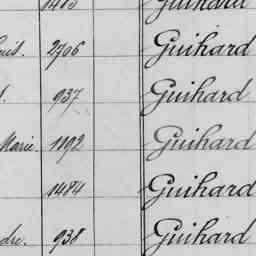 1485 Guihard
2706 Guihard
937 Guihard
Marie 1192 Guihard
1484 Guihard
938 Guihard